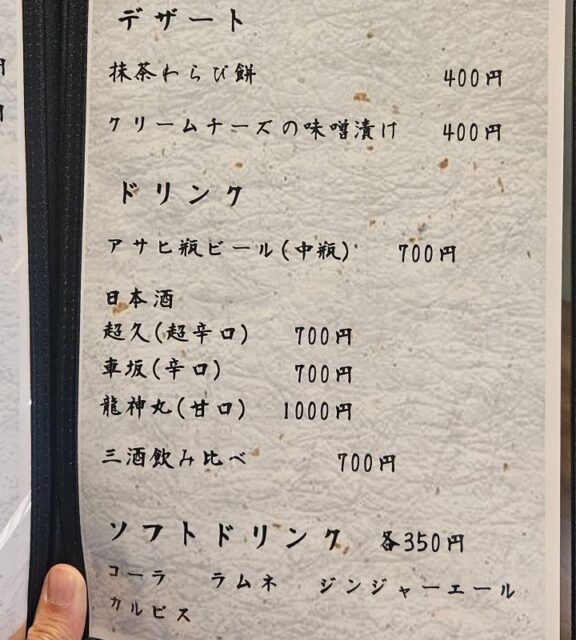 デザート
抹茶わらび餅 400円
クリームチーズの味噌漬け 400円
ドリンク
アサヒ瓶ビール(中瓶) 700円
日本酒
超久(超辛口) 700円
車坂(辛口) 700円
龍神丸(甘口) 1000円
三酒飲み比べ 700円
ソフトドリンク 各350円
コーラ ラムネ ジンジャーエール
カルピス